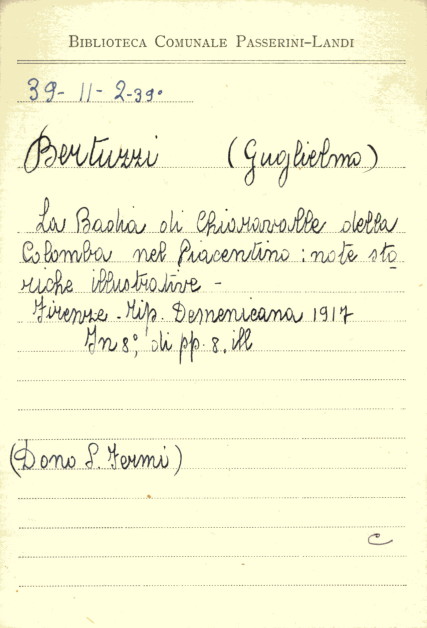 Biblioteca Comunale Passerini-Landi
39- II- 2-39º
Bertuzzi (Guglielmo)
La Badia di Chiaravalle della
Colomba nel Piacentino: note sto
riche illustrative -
Firenze - Tip. Domenicana 1917
In 8°, di pp. 8. ill
(Dono S. Fermi)
c